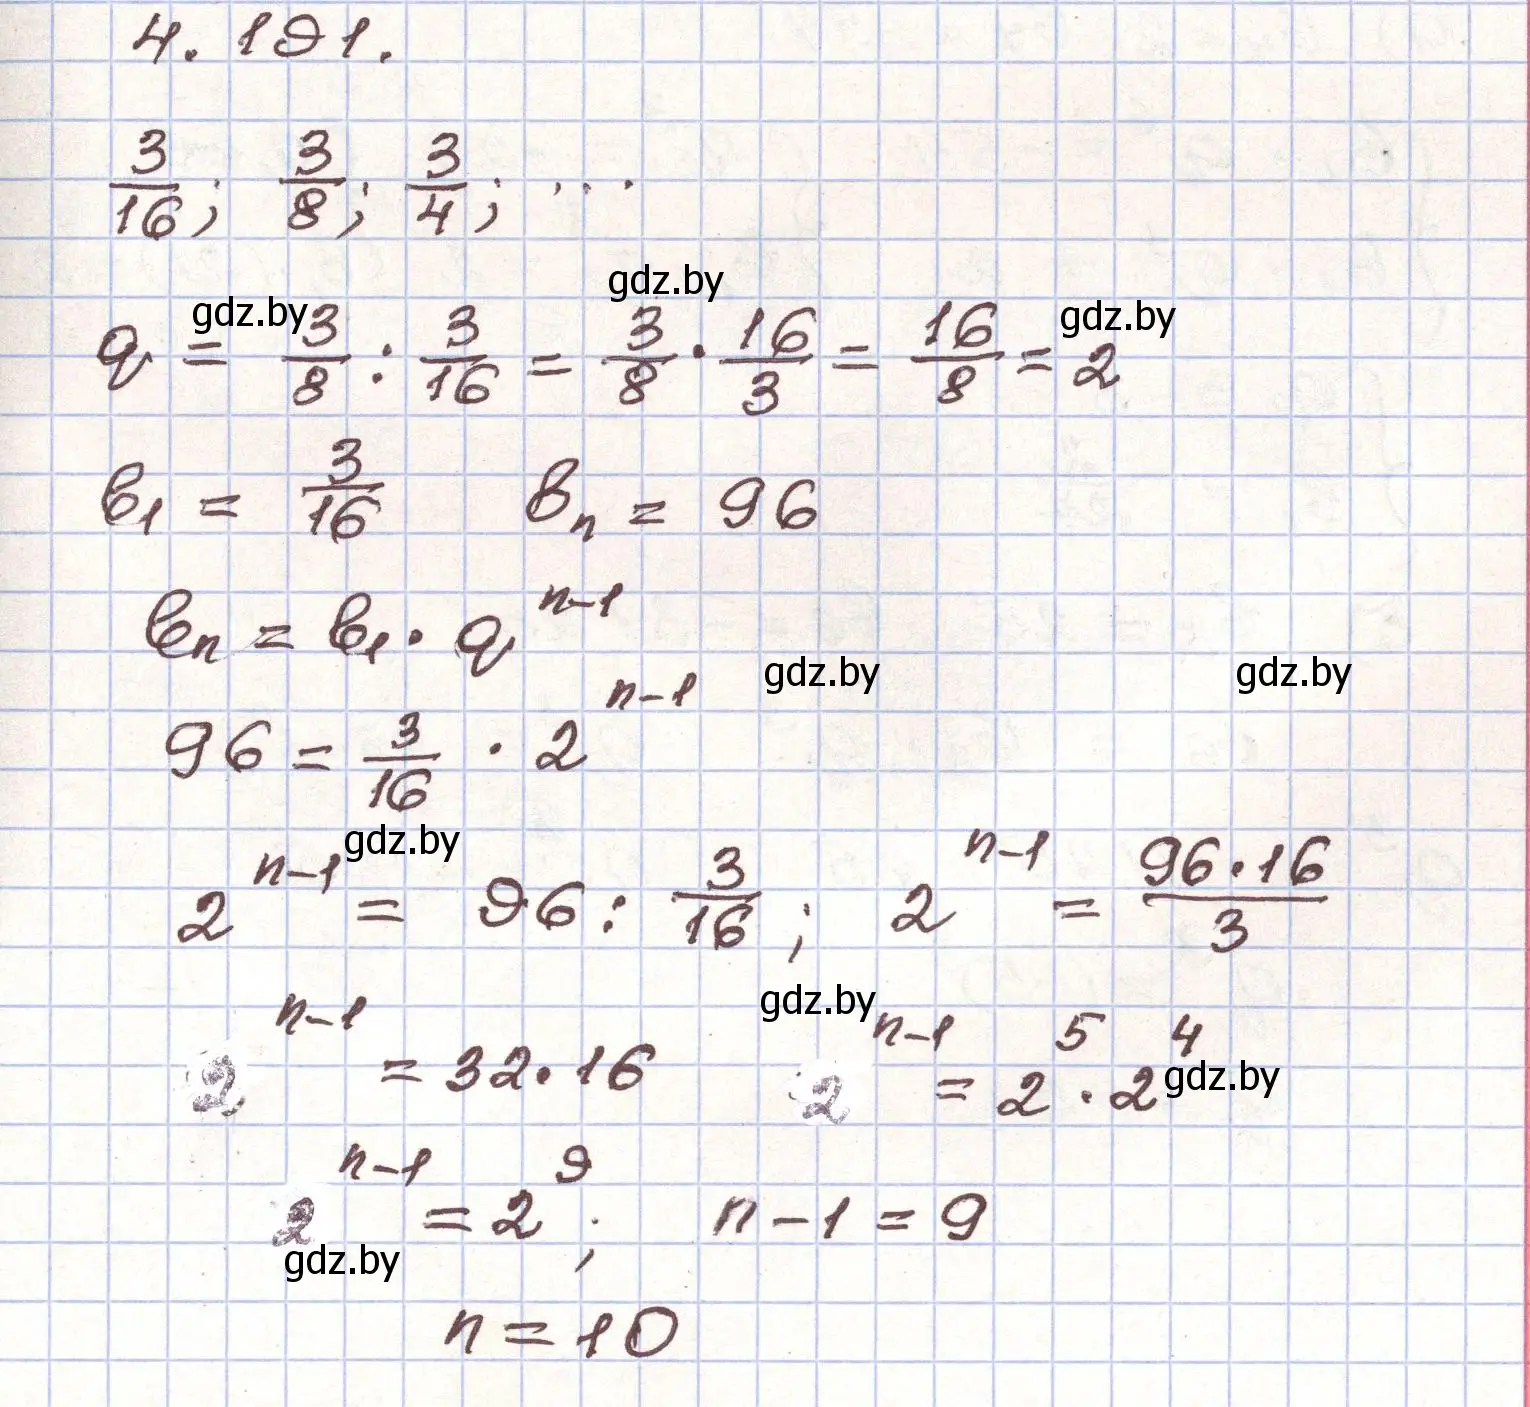 4.191.
3/16; 3/8; 3/4; ...
gdz.by
gdz.by gdz.by
q = 3/8 : 3/16 = 3/8 · 16/3 = 16/8 = 2
b₁ = 3/16 bₙ = 96
bₙ = b₁ · qⁿ⁻¹
gdz.by gdz.by
96 = 3/16 · 2ⁿ⁻¹
gdz.by
2ⁿ⁻¹ = 96 : 3/16; 2ⁿ⁻¹ = 96·16/3
gdz.by
2ⁿ⁻¹ = 32·16 2ⁿ⁻¹ = 2⁵ · 2⁴ gdz.by
2ⁿ⁻¹ = 2⁹; n-1 = 9
gdz.by
n = 10